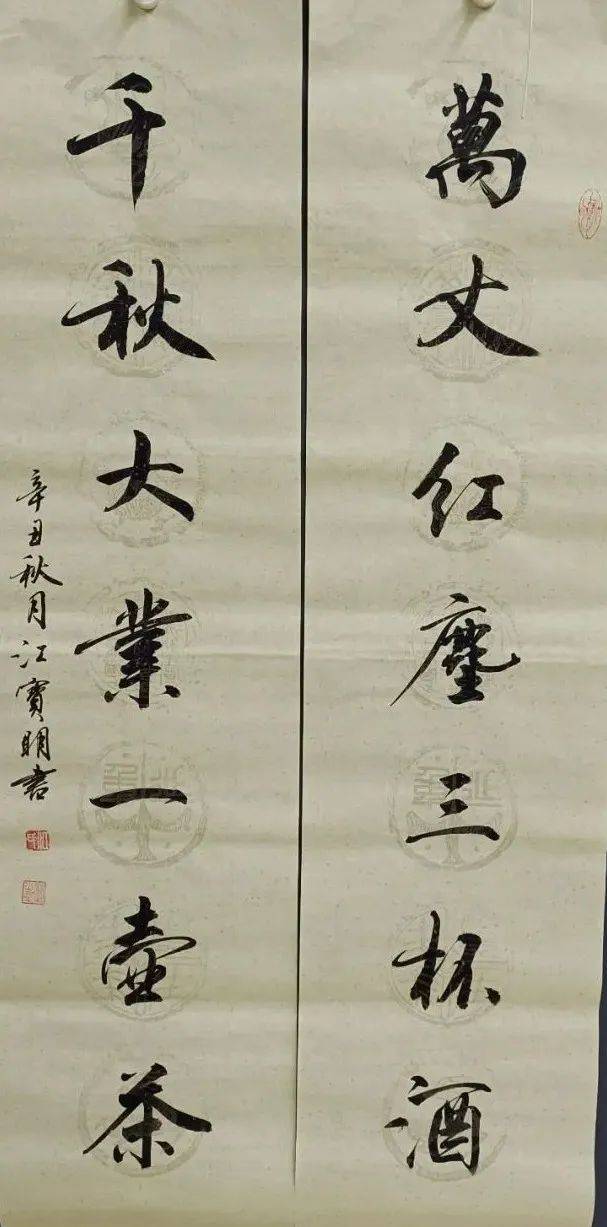 萬丈红塵三杯酒
千秋大業一壺茶
辛丑秋月江寳明書